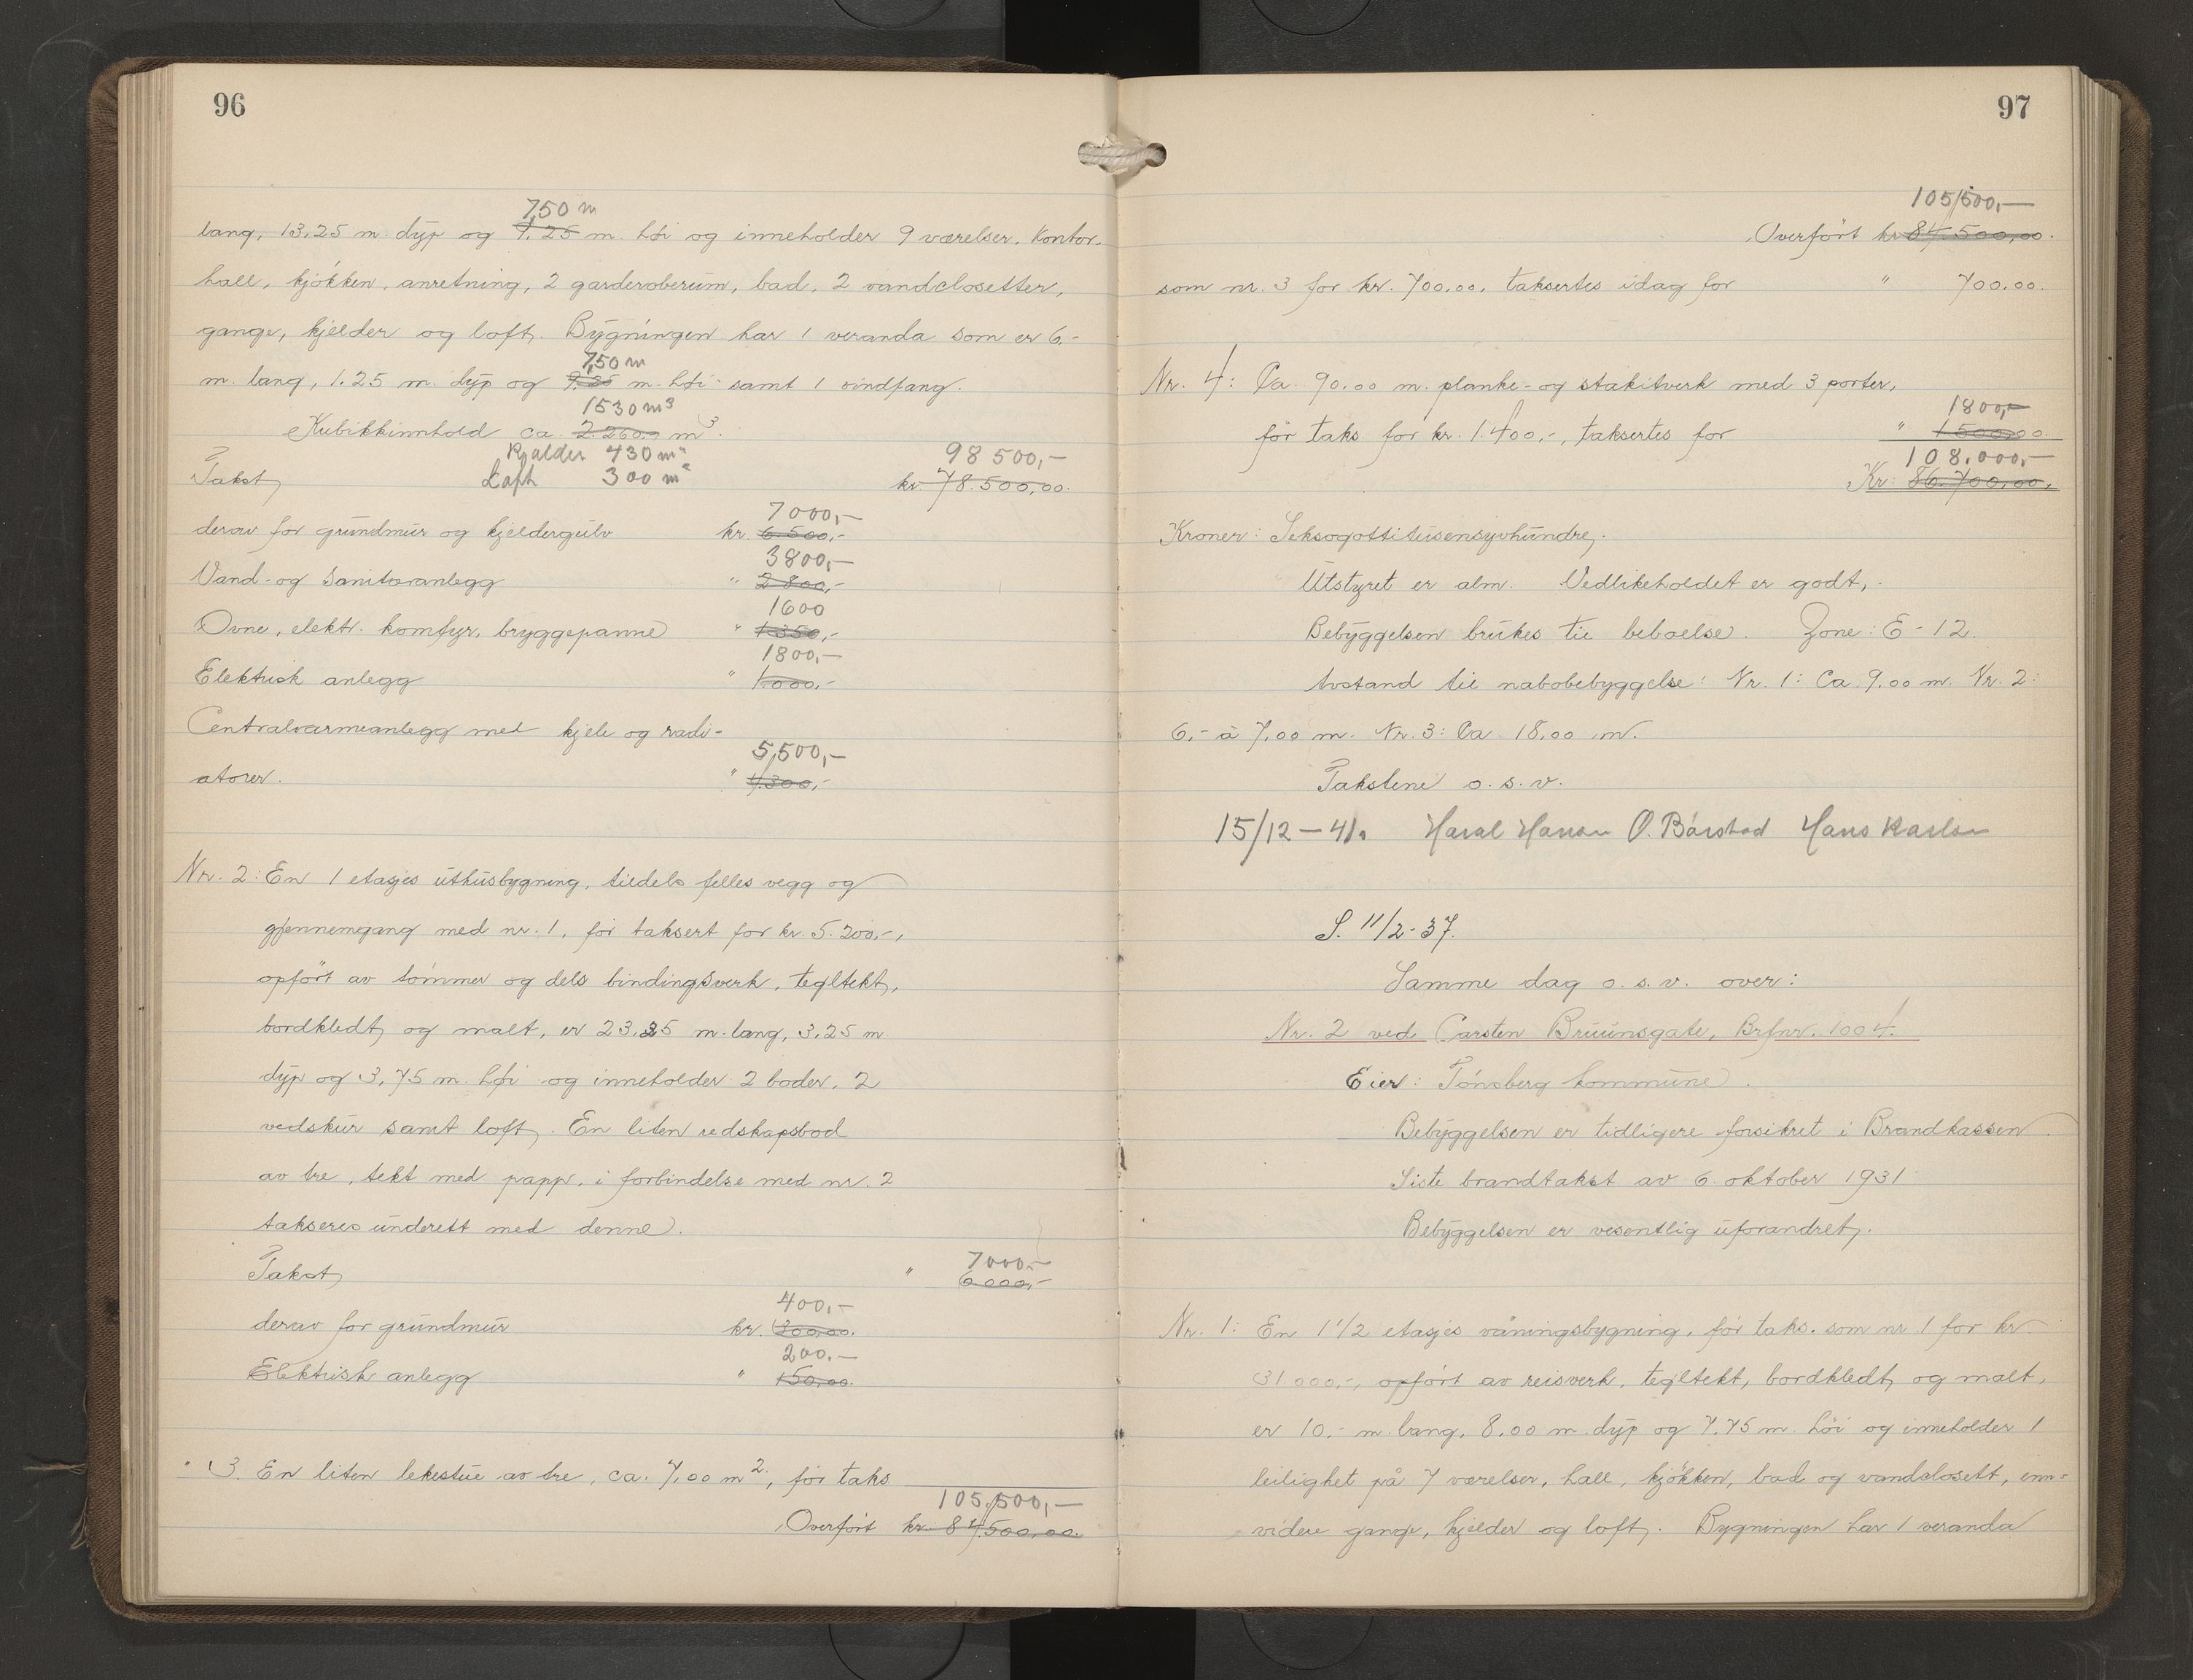 96
750 m
lang, 13.25 m. dyp og 9.25 m. høi og inneholder 9 værelser, kontor,
hall, kjøkken, anretning, 2 garderoberum, bad, 2 vandclosetter,
gange, kjelder og loft. Bygningen har 1 veranda som er 6.-
7,50 m
m. lang, 1.25 m. dyp og 9.25 m. høi samt 1 vindfang.
1530 m³
Kubikkinnhold ca. 2.260.0 m³.
Kjælder 430 m³
98 500,-
Takst Loft 300 m³ kr. 78.500,00.
7000,-
derav for grundmur og kjeldergulv kr. 6.500,-
3800,-
Vand- og Sanitæranlegg " 2.800,-
1600
Ovne, elektr. komfyr, bryggepanne " 1.350,-
1800,-
Elektrisk anlegg " 1.000.-
Centralvarmeanlegg med kjele og radi-
5,500,-
atorer. " 4.300,-
Nr. 2: En 1 etasjes uthusbygning, tildels felles vegg og
gjennemgang med nr. 1, før taksert for kr. 5.200,-,
opført av tømmer og dels bindingsverk, tegltekt,
bordkledt og malt, er 23.25 m. lang, 3.25 m
dyp og 3,75 m. høi og inneholder 2 boder, 2
vedskur samt loft. En liten redskapsbod
av tre, tekt med papp, i forbindelse med nr. 2
takseres underett med denne.
7000.-
Takst " 6.000,-
400,-
derav for grundmur kr. 300,00.
200.-
Elektrisk anlegg " 150,00.
" 3. En liten lekestue av tre, ca. 7,00 m², før taks
105,500,-
Overført kr. 84,500,00.
97
105,500,-
Overført kr. 84.500,00.
som nr. 3 for kr. 700.00, taksertes idag for " 700.00.
Nr. 4: Ca. 90.00 m. planke- og stakitverk med 3 porter,
1800,-
før taks for kr. 1.400,-, taksertes for " 1.500,00.
108.000,-
Kr. 86.700,00.
Kroner: Seksogottitusensyvhundre.
Utstyret er alm. Vedlikeholdet er godt.
Bebyggelsen brukes til beboelse. Zone: E-12.
Avstand til nabobebyggelse: Nr. 1: Ca 9.00 m. Nr. 2:
6,- à 7.00 m. Nr. 3: Ca. 18.00 m.
Takstene o.s.v.
15/12-41. Haral Hansen O. Bårstad Hans Karlsen
S. 11/2-37.
Samme dag o.s.v. over:
Nr. 2 ved Carsten Bruunsgate, Brfnr. 1004.
Eier: Tønsberg kommune.
Bebyggelsen er tidligere forsikret i Brandkassen.
Siste brandtakst av 6. oktober 1931
Bebyggelsen er vesentlig uforandret.
Nr. 1: En 1 1/2 etasjes våningsbygning, før taks. som nr 1 for kr
31.000,-, opført av reisverk, tegltekt, bordkledt og malt,
er 10.- m. lang, 8.00 m. dyp og 7.75 m. høi og inneholder 1
leilighet på 7 værelser, hall, kjøkken, bad og vandclosett, enn-
videre gange, kjelder og loft. Bygningen har 1 veranda